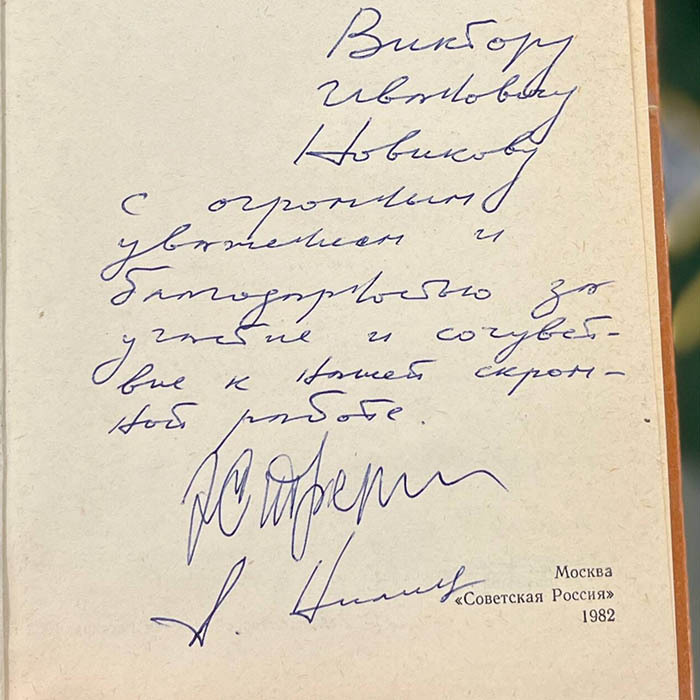 Виктору
Ивановичу
Новикову
с огромным
уважением и
благодарностью за
участие и сочувст-
вие к нашей скром-
ной работе.
А.
Москва
«Советская Россия»
1982